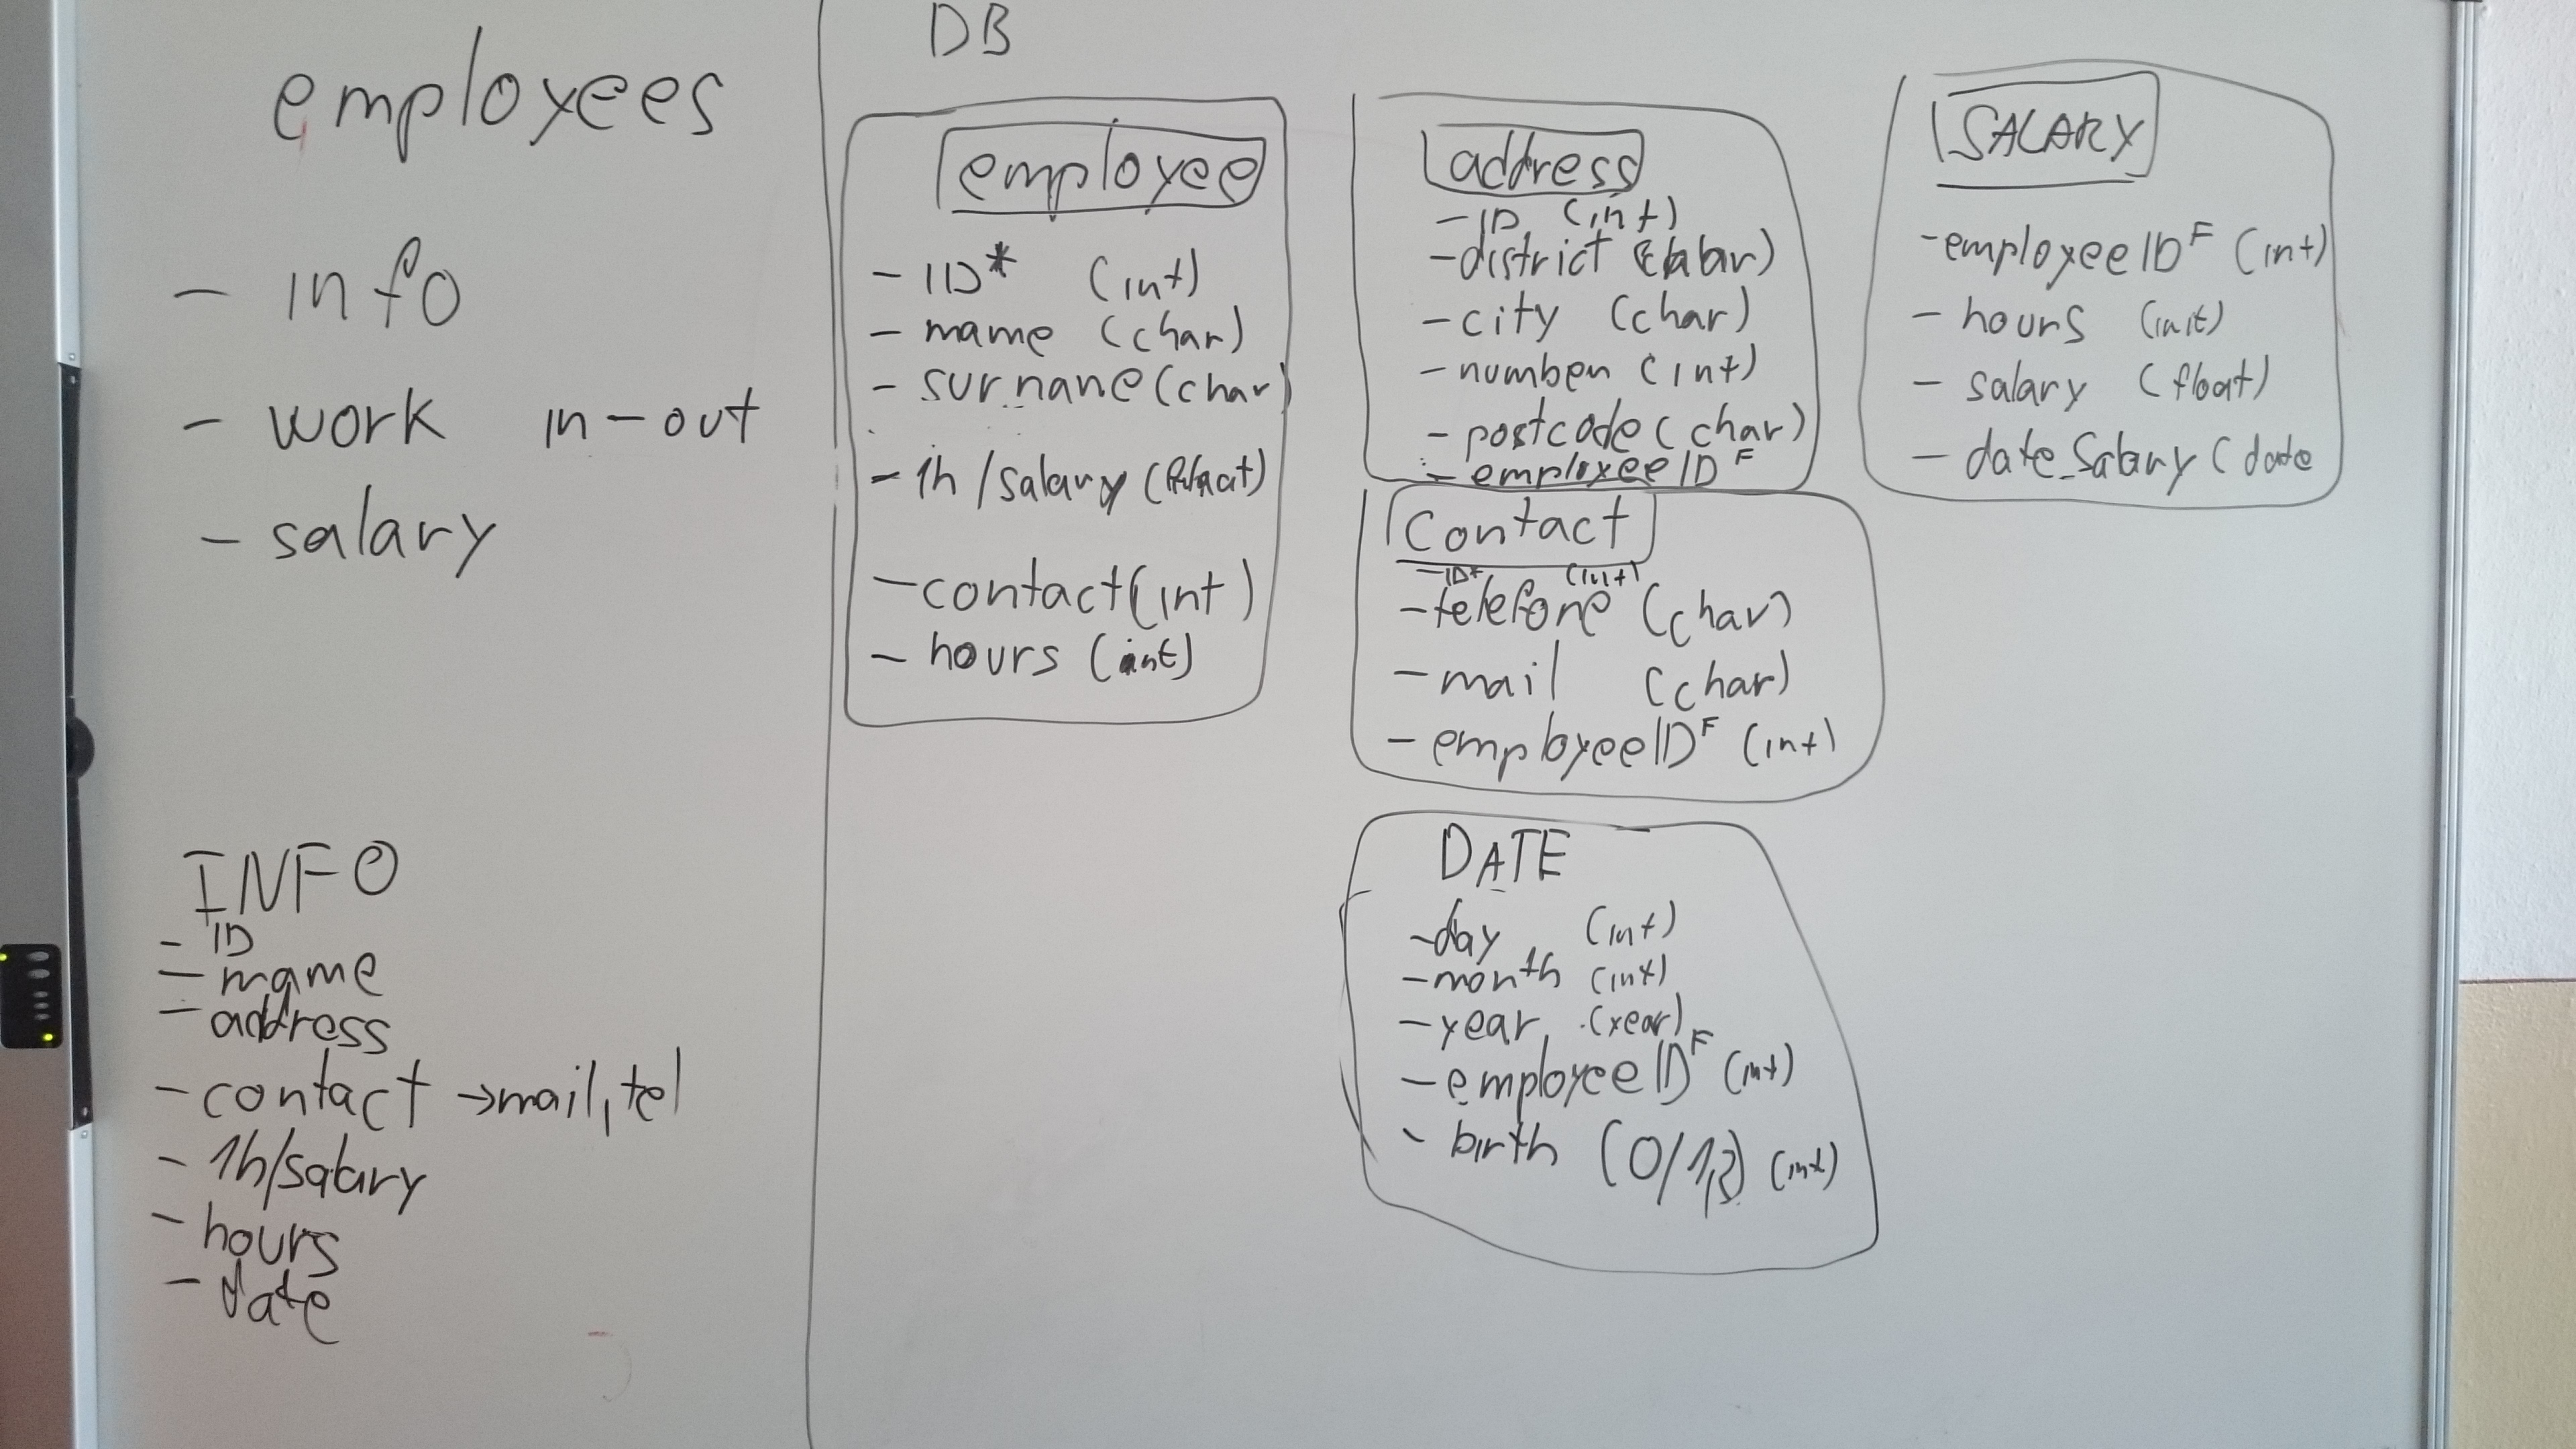 employees
- info
- work in-out
- salary
INFO
- ID
- name
- address
- contact →mail, tel
- 1h/salary
- hours
- date
DB
employee
- ID* (int)
- name (char)
- surname (char)
- 1h/salary (float)
- contact (int)
- hours (int)
address
- ID (int)
- district (char)
- city (char)
- number (int)
- postcode (char)
- employeeID F
Contact
- ID* (int)
- telefone (char)
- mail (char)
- employeeID F (int)
DATE
- day (int)
- month (int)
- year (year)
- employeeID F (int)
- birth (0/1,2) (int)
SALARY
- employeeID F (int)
- hours (int)
- salary (float)
- date_Salary (date